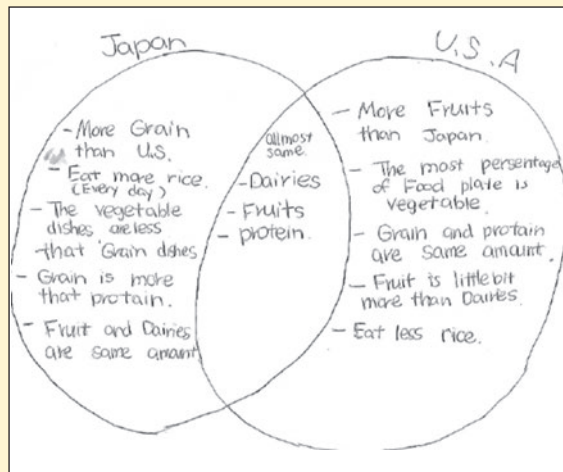 Japan
- More Grain
than U.S.
- Eat more rice.
(Every day)
- The vegetable
dishes are less
that Grain dishes
- Grain is more
that protain.
- Fruit and Dairies
are same amount
allmost
same.
- Dairies
- Fruits
- protein.
U.S.A
- More Fruits
than Japan.
- The most persentage
of Food plate is
vegetable.
- Grain and protain
are same amount.
- Fruit is little bit
more than Dairies.
- Eat less rice.